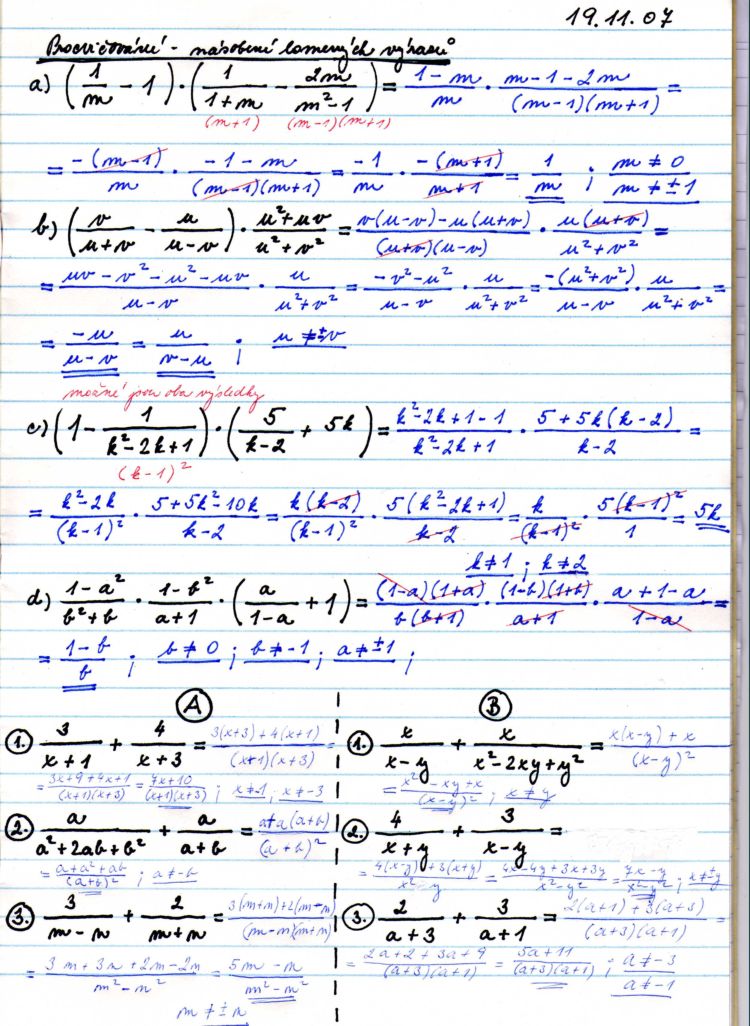 19.11.07
Procvičování - násobení lomených výrazů
a) (1/m - 1) · (1/(1+m) - 2m/(m²-1)) = (1-m)/m · (m-1-2m)/((m-1)(m+1)) =
(m+1) (m-1)(m+1)
= -(m-1)/m · (-1-m)/((m-1)(m+1)) = -1/m · -(m+1)/(m+1) = 1/m ; m≠0 m≠±1
b) (v/(u+v) - u/(u-v)) · (u²+uv)/(u²+v²) = (v(u-v)-u(u+v))/((u+v)(u-v)) · u(u+v)/(u²+v²) =
= (uv-v²-u²-uv)/(u-v) · u/(u²+v²) = (-v²-u²)/(u-v) · u/(u²+v²) = -(u²+v²)/(u-v) · u/(u²+v²) =
= -u/(u-v) = u/(v-u) ; u≠±v
možné jsou oba výsledky
c) (1 - 1/(k²-2k+1)) · (5/(k-2) + 5k) = (k²-2k+1-1)/(k²-2k+1) · (5+5k(k-2))/(k-2) =
(k-1)²
= (k²-2k)/(k-1)² · (5+5k²-10k)/(k-2) = k(k-2)/(k-1)² · 5(k²-2k+1)/(k-2) = k/(k-1)² · 5(k-1)²/1 = 5k
k≠1 ; k≠2
d) (1-a²)/(b²+b) · (1-b²)/(a+1) · (a/(1-a) + 1) = (1-a)(1+a)/(b(b+1)) · (1-b)(1+b)/(a+1) · (a+1-a)/(1-a) =
= (1-b)/b ; b≠0 ; b≠-1 ; a≠±1 ;
A
1. 3/(x+1) + 4/(x+3) = (3(x+3)+4(x+1))/((x+1)(x+3))
= (3x+9+4x+1)/((x+1)(x+3)) = (7x+10)/((x+1)(x+3)) ; x≠1 ; x≠-3
2. a/(a²+2ab+b²) + a/(a+b) = (a+a(a+b))/(a+b)²
= (a+a²+ab)/(a+b)² ; a≠-b
3. 3/(m-n) + 2/(m+n) = (3(m+n)+2(m-n))/((m-n)(m+n))
= (3m+3n+2m-2n)/(m²-n²) = (5m-n)/(m²-n²)
m≠±n
B
1. x/(x-y) + x/(x²-2xy+y²) = (x(x-y)+x)/(x-y)²
= (x²-xy+x)/(x-y)² ; x≠y
2. 4/(x+y) + 3/(x-y) =
= (4(x-y)+3(x+y))/(x²-y²) = (4x-4y+3x+3y)/(x²-y²) = (7x-y)/(x²-y²) ; x≠±y
3. 2/(a+3) + 3/(a+1) = (2(a+1)+3(a+3))/((a+3)(a+1)) =
= (2a+2+3a+9)/((a+3)(a+1)) = (5a+11)/((a+3)(a+1)) ; a≠-3
a≠-1